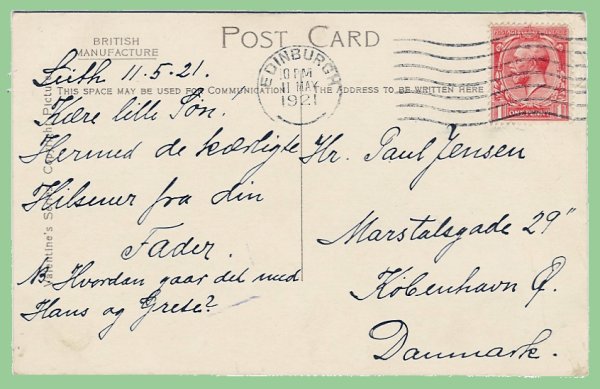 BRITISH
MANUFACTURE
POST CARD
THIS SPACE MAY BE USED FOR COMMUNICATION
THE ADDRESS TO BE WRITTEN HERE
EDINBURGH
10 PM
11 MAY
1921
Leith 11.5.21.
Kære lille Søn!
Hermed de kærligste
Hilsener fra din
Fader.
NB Hvordan gaar det med
Hans og Grete?
Hr. Paul Jensen
Marstalsgade 29"
København Ø.
Danmark.
Valentine's Series Copyright